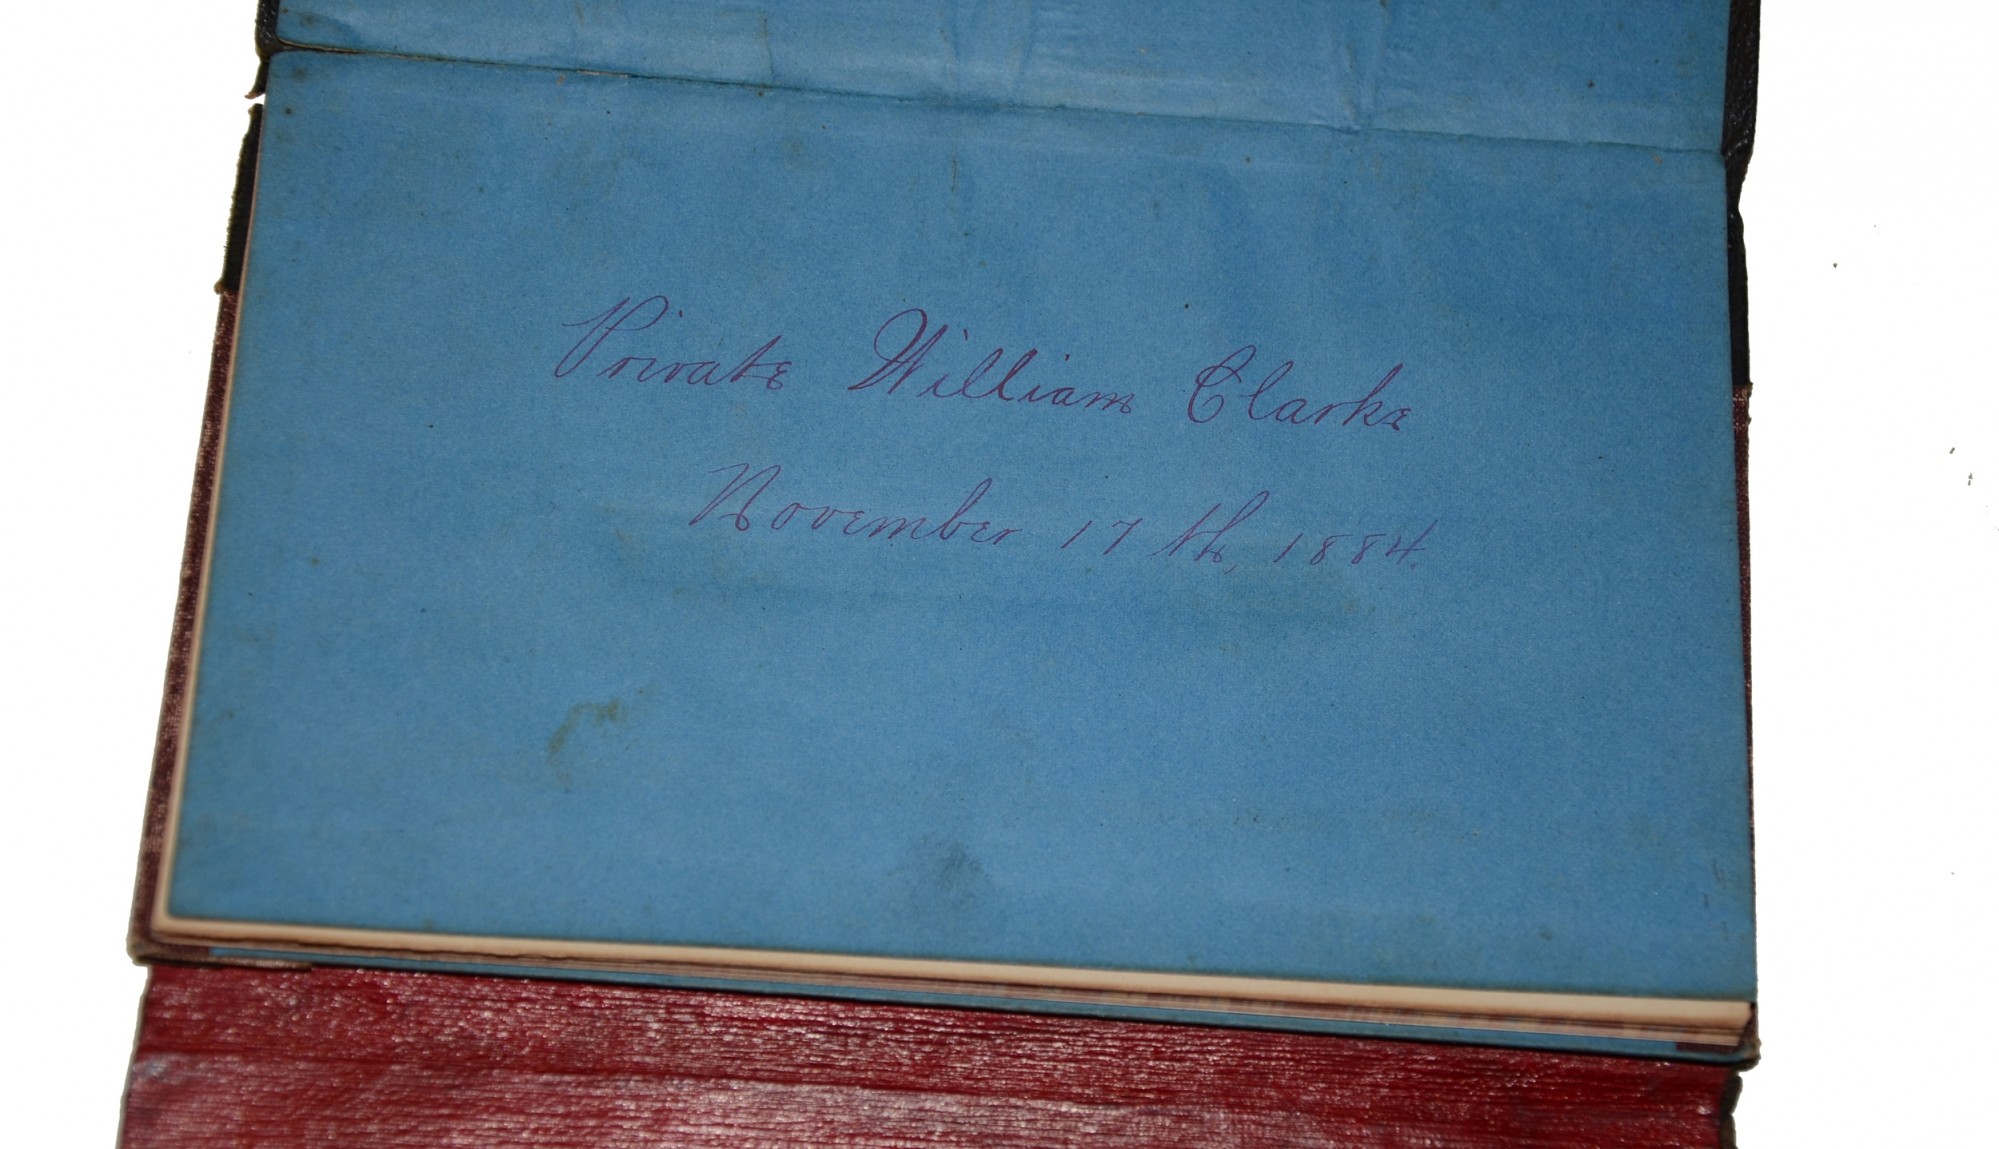 Private William Clarke
November 17th, 1884.